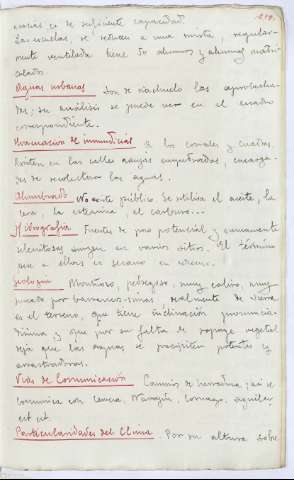 279.
es de suficiente capacidad.
Las escuelas, se reducen a una mixta, regular-
mente ventilada tiene 50 alumnos y alumnas matri-
culados.
Aguas urbanas Son de riachuelo las aprovecha-
das; su análisis se puede ver en el cuadro
correspondiente.
Evacuación de inmundicias A los corrales y cuadras.
Existen en las calles zanjas empedradas, encarga-
das de recolectar las aguas.
Alumbrado No existe público. Se utiliza el aceite, la
tea, la estearina, el carburo...
Hidrografía Fuentes de poco potencial y sumamente
selenitosas surgen en varios sitios. El término
que a ellas es secano en
Geología Montuoso, pedregoso, muy calizo, muy
por barrancos-simas realmente de sierra
es el terreno, que tiene inclinación pronuncia-
dísima y que por su falta de ropaje vegetal
deja que las aguas se precipiten potentes y
arrastradoras.
Vías de Comunicación Camino de herradura; así se
comunica con Navajún, Cornago, Aguilar,
ect ect.
Particularidades del Clima. Por su altura sobre